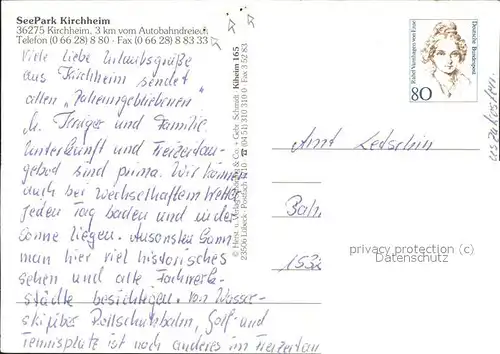 SeePark Kirchheim
36275 Kirchheim, 3 km vom Autobahndreieck
Telefon (0 66 28) 8 80 · Fax (0 66 28) 8 83 33
Viele liebe Urlaubsgrüße
aus Kirchheim sendet
allen „Daheimgebliebenen"
und Familie.
Unterkunft und Freizeitan-
gebot sind prima. Wir können
auch bei wechselhaftem Wetter
jeden Tag baden und in der
Sonne liegen. Ansonsten kann
man hier viel historisches
sehen und alte Fachwerk-
städte besichtigen. Von Wasser-
ski über Rollschuhbahn, Golf- und
Tennisplatz ist noch anderes im Freizeitan
Schmidt Küheim 165
23506 Lübeck · Postfach
Fax 3 52 83
Rahel Varnhagen von Ense
Deutsche Bundespost
80
Amt Letschin
Bah
1532
privacy protection (c)
Datenschutz